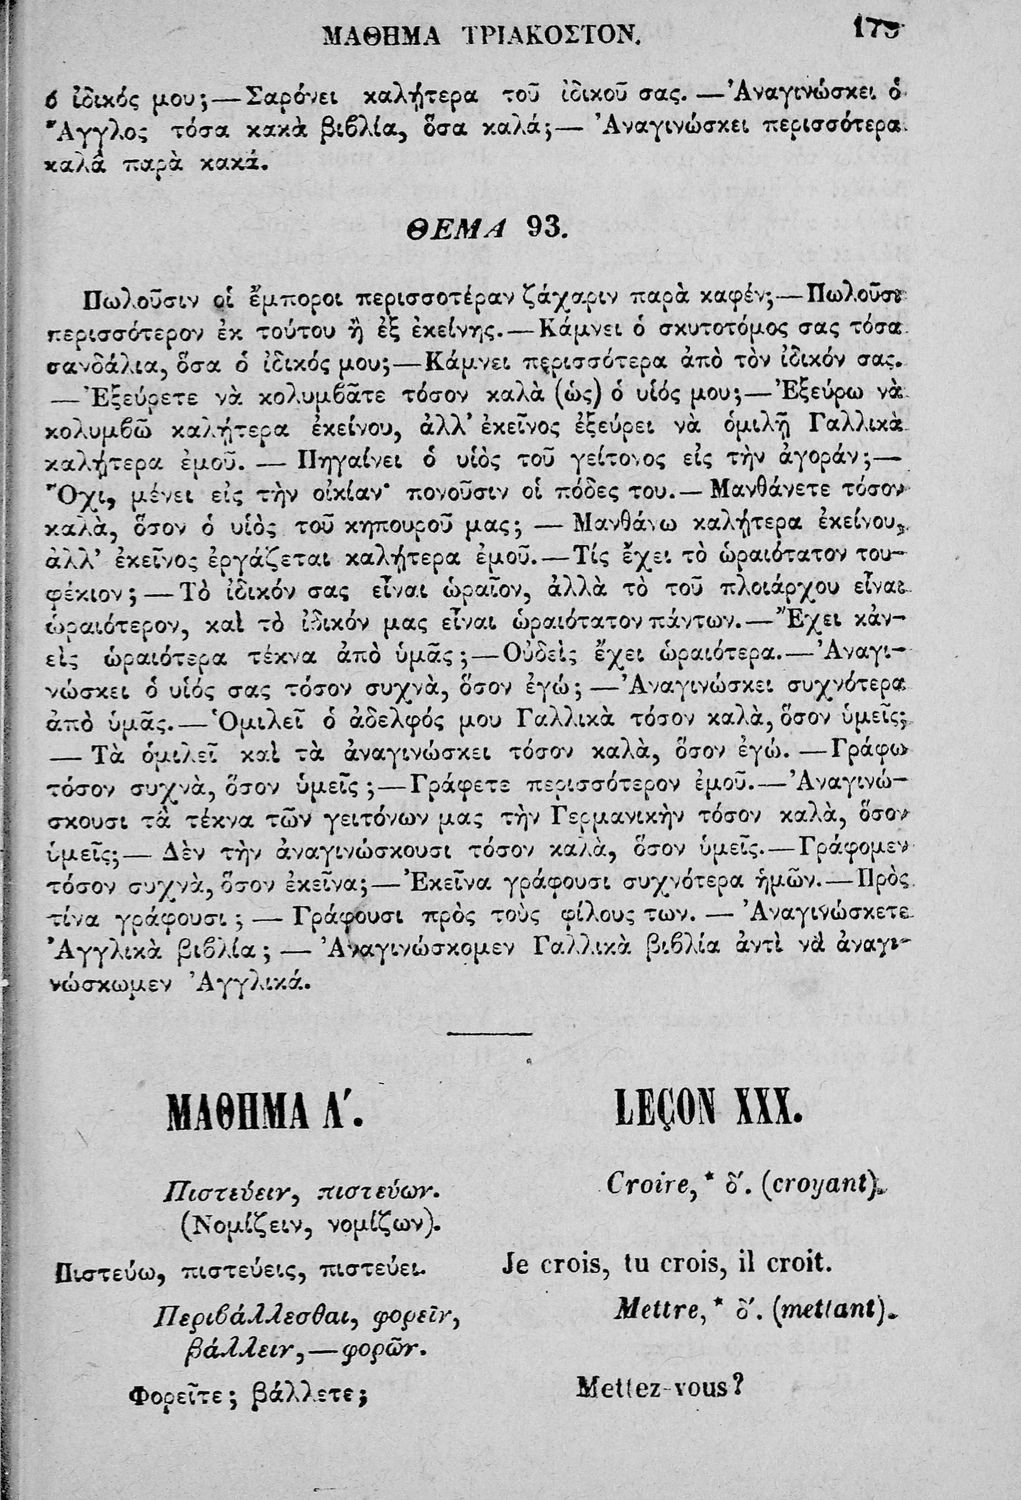 ΜΑΘΗΜΑ ΤΡΙΑΚΟΣΤΟΝ. 175
ὁ ἰδικός μου;—Σαρόνει καλήτερα τοῦ ἰδικοῦ σας.—Ἀναγινώσκει ὁ
Ἄγγλος τόσα κακὰ βιβλία, ὅσα καλά;— Ἀναγινώσκει περισσότερα
καλὰ παρὰ κακά.
ΘΕΜΑ 93.
Πωλοῦσιν οἱ ἔμποροι περισσοτέραν ζάχαριν παρὰ καφέν;—Πωλοῦσι
περισσότερον ἐκ τούτου ἢ ἐξ ἐκείνης.—Κάμνει ὁ σκυτοτόμος σας τόσα
σανδάλια, ὅσα ὁ ἰδικός μου;—Κάμνει περισσότερα ἀπὸ τὸν ἰδικόν σας.
—Ἐξεύρετε νὰ κολυμβᾶτε τόσον καλὰ (ὡς) ὁ υἱός μου;—Ἐξεύρω νὰ
κολυμβῶ καλήτερα ἐκείνου, ἀλλ' ἐκεῖνος ἐξεύρει νὰ ὁμιλῇ Γαλλικὰ
καλήτερα ἐμοῦ. — Πηγαίνει ὁ υἱὸς τοῦ γείτονος εἰς τὴν ἀγοράν;—
Ὄχι, μένει εἰς τὴν οἰκίαν· πονοῦσιν οἱ πόδες του.—Μανθάνετε τόσον
καλὰ, ὅσον ὁ υἱὸς τοῦ κηπουροῦ μας; — Μανθάνω καλήτερα ἐκείνου,
ἀλλ' ἐκεῖνος ἐργάζεται καλήτερα ἐμοῦ.—Τίς ἔχει τὸ ὡραιότατον του-
φέκιον;—Τὸ ἰδικόν σας εἶναι ὡραῖον, ἀλλὰ τὸ τοῦ πλοιάρχου εἶναι
ὡραιότερον, καὶ τὸ ἰδικόν μας εἶναι ὡραιότατον πάντων.—Ἔχει κάν-
εὶς ὡραιότερα τέκνα ἀπὸ ὑμᾶς;—Οὐδεὶς ἔχει ὡραιότερα.—Ἀναγι-
νώσκει ὁ υἱός σας τόσον συχνὰ, ὅσον ἐγώ;—Ἀναγινώσκει συχνότερα
ἀπὸ ὑμᾶς.—Ὁμιλεῖ ὁ ἀδελφός μου Γαλλικὰ τόσον καλὰ, ὅσον ὑμεῖς;
— Τὰ ὁμιλεῖ καὶ τὰ ἀναγινώσκει τόσον καλὰ, ὅσον ἐγώ. —Γράφω
τόσον συχνὰ, ὅσον ὑμεῖς;—Γράφετε περισσότερον ἐμοῦ.—Ἀναγινώ-
σκουσι τὰ τέκνα τῶν γειτόνων μας τὴν Γερμανικὴν τόσον καλὰ, ὅσον
ὑμεῖς;— Δὲν τὴν ἀναγινώσκουσι τόσον καλὰ, ὅσον ὑμεῖς.—Γράφομεν
τόσον συχνὰ, ὅσον ἐκεῖνα;—Ἐκεῖνα γράφουσι συχνότερα ἡμῶν.—Πρὸς
τίνα γράφουσι; — Γράφουσι πρὸς τοὺς φίλους των. — Ἀναγινώσκετε
Ἀγγλικὰ βιβλία; — Ἀναγινώσκομεν Γαλλικὰ βιβλία ἀντὶ νὰ ἀναγι-
νώσκωμεν Ἀγγλικά.
ΜΑΘΗΜΑ Λ΄.
LEÇON XXX.
Πιστεύειν, πιστεύων.
Croire,* δ΄. (croyant).
(Νομίζειν, νομίζων).
Πιστεύω, πιστεύεις, πιστεύει.
Je crois, tu crois, il croit.
Περιβάλλεσθαι, φορεῖν,
Mettre,* δ΄. (mettant).
βάλλειν,—φορῶν.
Φορεῖτε; βάλλετε;
Mettez-vous?